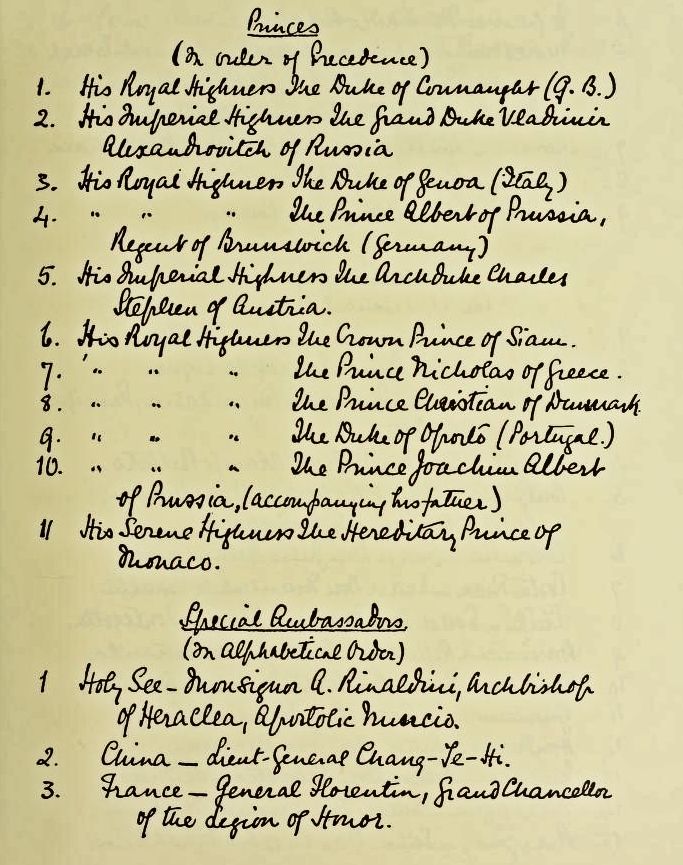 Princes
(In order of Precedence)
1. His Royal Highness The Duke of Connaught (G. B.)
2. His Imperial Highness The Grand Duke Vladimir
Alexandrovitch of Russia
3. His Royal Highness The Duke of Genoa (Italy)
4. " " " The Prince Albert of Prussia,
Regent of Brunswick (Germany)
5. His Imperial Highness The Archduke Charles
Stephen of Austria.
6. His Royal Highness The Crown Prince of Siam.
7. " " " The Prince Nicholas of Greece.
8. " " " The Prince Christian of Denmark.
9. " " " The Duke of Oporto (Portugal.)
10. " " " The Prince Joachim Albert
of Prussia, (accompanying his father)
11 His Serene Highness The Hereditary Prince of
Monaco.
Special Ambassadors.
(In Alphabetical Order)
1 Holy See – Monsignor A. Rinaldini, Archbishop
of Heraclea, Apostolic Nuncio.
2. China – Lieut-General Chang-Te-Hi.
3. France – General Florentin, Grand Chancellor
of the Legion of Honor.